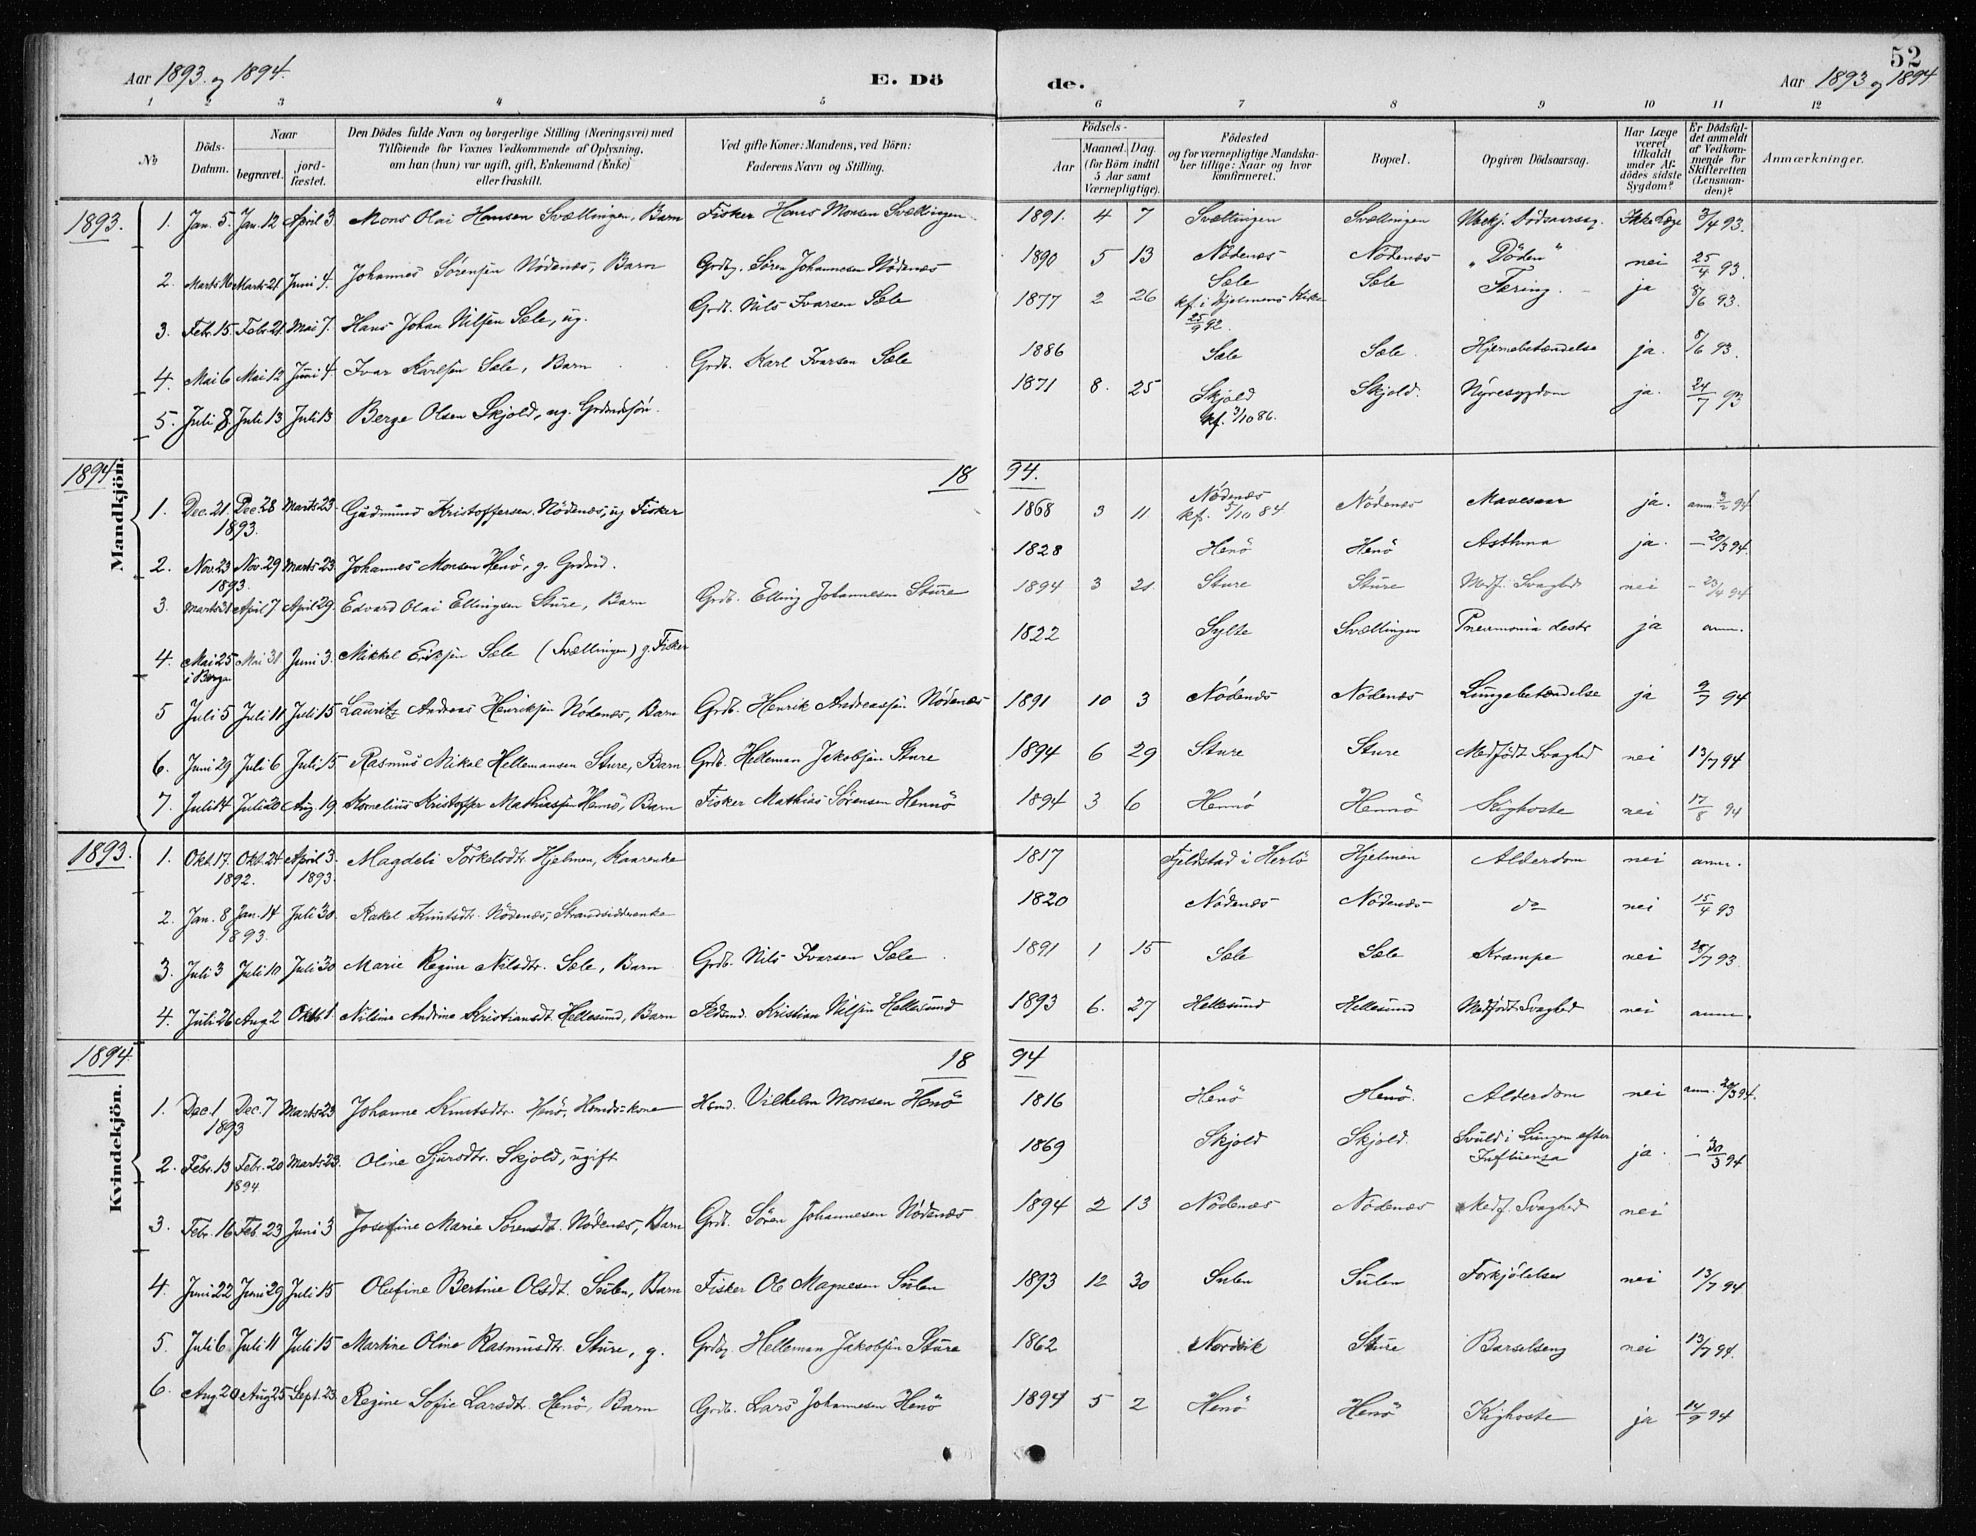 52
Aar 1893 og 1894. E. Dö de. Aar 1893 og 1894
1 2 3 4 5 6 7 8 9 10 11 12
No
Döds-Datum.
Naar
begravet.
jordfæstet.
Den Dödes fulde Navn og borgerlige Stilling (Næringsvei) med Tilföiende for Voxnes Vedkommende af Oplysning, om han (hun) var ugift, gift, Enkemand (Enke) eller fraskilt.
Ved gifte Koner: Mandens, ved Börn: Faderens Navn og Stilling.
Födsels-
Aar
Maaned. Dag.
(for Börn indtil 5 Aar samt Værnepligtige).
Födested og for værnepligtige Mandskaber tillige: Naar og hvor konfirmeret.
Bopæl.
Opgiven Dödsaarsag.
Har Læge været tilkaldt under Afdödes sidste Sygdom?
Er Dödsfaldet anmeldt af Vedkommende for Skifteretten (Lensmanden)?
Anmærkninger.
Mandkjön.
1893.
1. Jan. 5. Jan. 12 April 3. Mons Olai Hansen Svællingen, Barn Fisker Hans Monsen Svællingen 1891. 4 7 Svællingen Svællingen Ubekj. Dödsaarsag. Ikke Læge 3/4 93.
2. Marts 16 Marts 21 Juni 4. Johannes Sørensen Nødenæs, Barn Grdbg. Søren Johannesen Nødenæs 1890 5 13 Nødenæs Nødenæs "Döden" nei 25/4 93.
3. Febr. 15 Febr. 21 Mai 7. Hans Johan Nilsen Sæle, ug. Grdb. Nils Ivarsen Sæle 1877 2 26 Sæle Sæle Tæring. ja 8/6 93.
kf. i Hjelmens Kirke
25/9 92.
4. Mai 6 Mai 12 Juni 4 Ivar Karlsen Sæle, Barn Grdb. Karl Ivarsen Sæle 1886 Sæle Sæle Hjernebetændelse ja. 8/6 93.
5. Juli 8. Juli 13 Juli 13 Berge Olsen Skjold, ug. Grdmdsøn. 1871 8. 25 Skjold Skjold. Nyresygdom ja. 24/7 93
kf. 3/10 86.
1894 18 94.
1. Dec. 21. Dec. 28 Marts 23 Gudmund Kristoffersen Nødenæs, ug Fisker 1868 3 11. Nødenæs Nødenæs Mavesaar ja. anm. 94
1893. kf. 5/10 84
2. Nov. 23 Nov. 29 Marts 23 Johannes Monsen Henö, g. Grdmd. 1828 Henö Henö Asthma ja. — 20/3 94.
1893.
3. Marts 31 April 7 April 29 Edvard Olai Ellingsen Sture, Barn Grdb. Elling Johannesen Sture 1894 3 21. Sture Sture Medf. Svaghed nei — 23/4 94
4. Mai 25 Mai 31 Juni 3. Mikkel Eriksen Sæle (Svællingen) g. Fisker 1822 Sylte Svællingen Pneumonia dextr ja anm.
i Bergen
5 Juli 5 Juli 11 Juli 15 Lauritz Andreas Henriksen Nødenæs, Barn Grdb. Henrik Andreassen Nødenæs 1891 10 3 Nødenæs Nødenæs Lungebetændelse ja 9/7 94
6. Juni 29 Juli 6 Juli 15 Rasmus Mikal Hellemansen Sture, Barn Grdb. Helleman Jakobsen Sture 1894 6 29 Sture Sture Medfödt Svaghed nei 13/7 94
7. Juli 14 Juli 20 Aug. 19. Kornelius Kristoffer Mathiassen Hennö, Barn Fisker Mathias Sørensen Hennö 1894 3 6 Hennö Hennö Kighoste nei 17/8 94
Kvindekjön.
1893.
1. Okt. 17. Okt. 24 April 3. Magdeli Torkelsdtr. Hjelmen, Kaarenke 1817 Fjeldstad i Herlö Hjelmen Alderdom nei anm.
1892. 1893.
2. Jan. 8 Jan. 14 Juli 30. Rakel Knutsdtr. Nødenæs, Strandsidderenke 1820 Nødenæs Nødenæs do nei 15/4 93
1893.
3. Juli 3 Juli 10 Juli 30 Marie Regine Nilsdtr. Sæle, Barn Grdb. Nils Ivarsen Sæle 1891 1 15 Sæle Sæle Krampe nei 28/7 93
4. Juli 26 Aug 2 Okt 1. Nilsine Andrine Kristiansdt. Hellesund, Barn Kristian Nilsen Hellesund 1893 6. 27 Hellesund Hellesund Medfödt Svaghed nei anm.
1894. 18 94
1. Dec. 1 Dec. 7 Marts 23 Johanne Knutsdtr. Henö, Hmds-kone Hsmd. Vilhelm Monsen Henö 1816 Henö Henö. Alderdom nei anm. 20/3 94.
1893
2. Febr. 13 Febr. 20 Marts 23. Oline Sjursdtr. Skjold, ugift 1869 Skjold Skjold. Svuld i Lungen efter ja. — 20/3 94
1894 Influenza
3. Febr. 16 Feb. 23 Juni 3 Josefine Marie Sørensdt. Nødenæs, Barn Grdb. Søren Johannesen Nødenæs 1894 2 13 Nødenæs Nødenæs Medf. Svaghed nei
4. Juni 22 Juni 29 Juli 15 Olefine Bertine Olsdt. Sulen, Barn Fisker Ole Magnesen Sulen 1893 12 30 Sulen Sulen Forkjölelse nei 13/7 94.
5. Juli 6 Juli 11 Juli 15 Martine Oline Rasmusdtr. Sture, g. Grdbg Helleman Jakobsen Sture 1862 Nordvik Sture Barselseng nei 13/7 94.
6. Aug 20 Aug 25 Sept. 23. Regine Sofie Larsdtr. Henö, Barn Grdb. Lars Johannesen Henö 1894 5 2 Henö Henö Kighoste ja 14/9 94